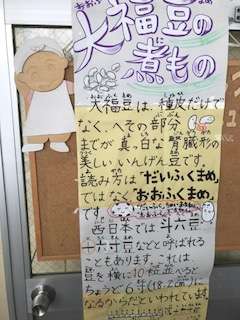 大福豆の
煮もの
大福豆は、種皮だけで
なく、へその部分
までが真っ白な腎臓形の
美しいいんげん豆です。
読み方は「だいふくまめ」
ではなく「おおふくまめ」
です。
西日本では斗六豆、
十六寸豆などと呼ばれる
こともあります。これは
豆を横に10粒並べると
ちょうど6寸(18.2cm)に
なるからだといわれています。